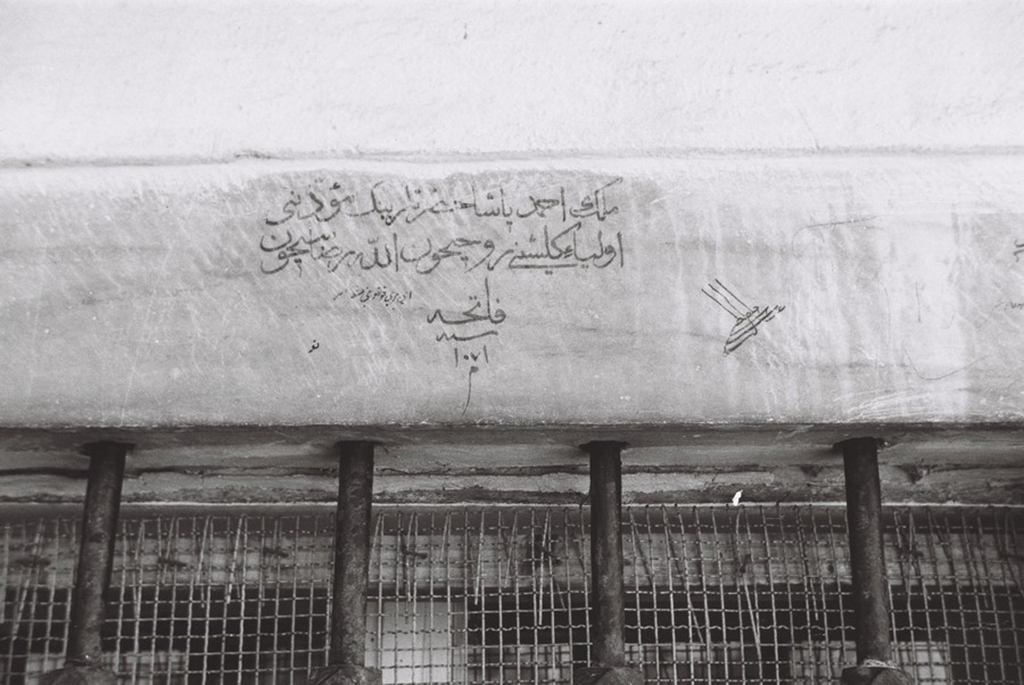 ملك احمد پاشا حضرتلرینك مؤذنی
اولیاء كلشنی روحیچون الله رضاسیچون
فاتحه
سنه
١٠٧١
م